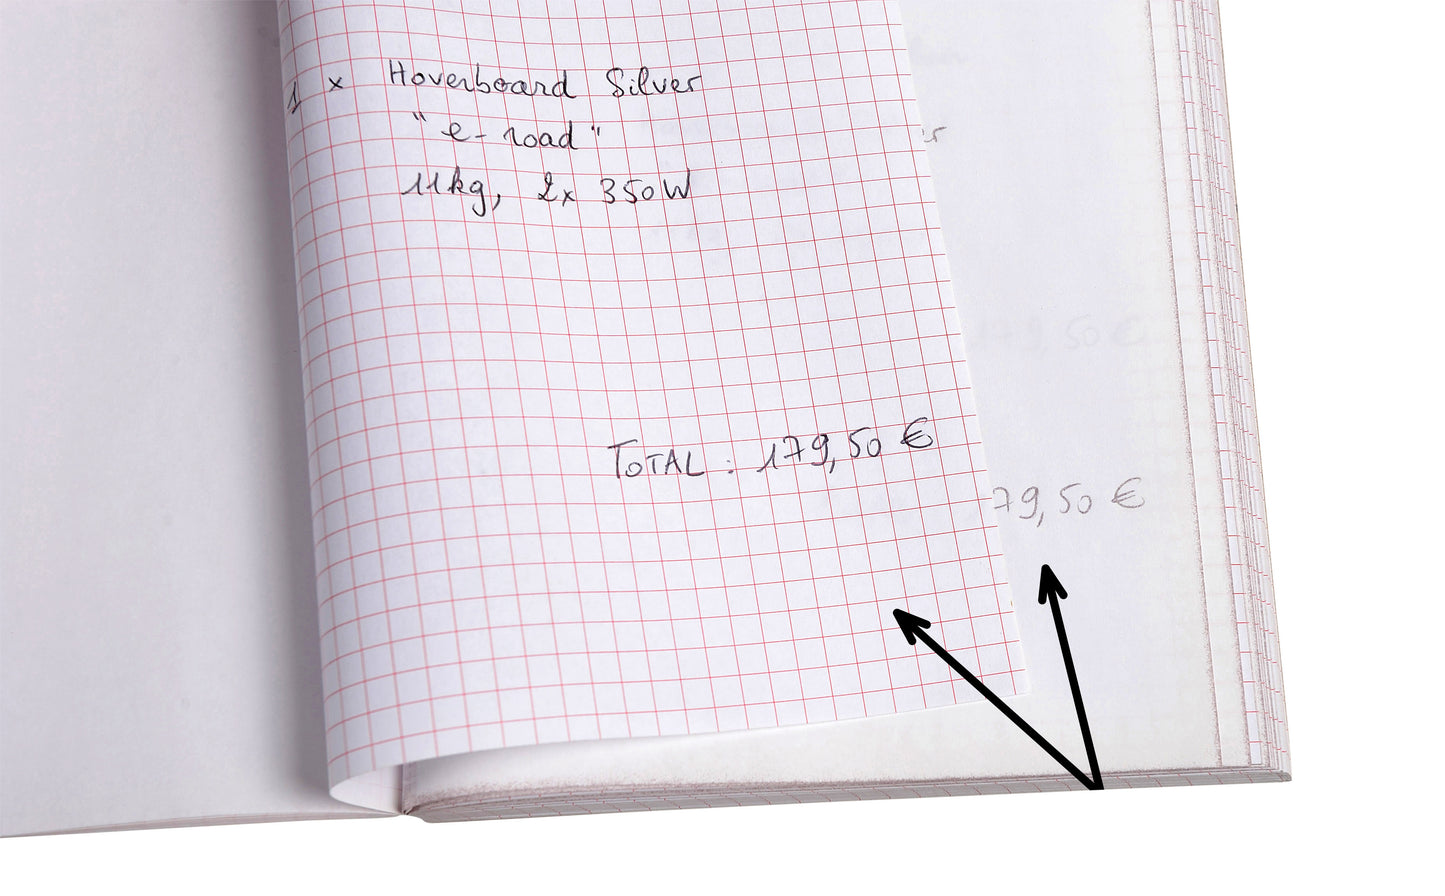 1 x Hoverboard Silver
"e-road"
11kg, 2x 350W
TOTAL : 179,50 €
79,50 €
9,50 €